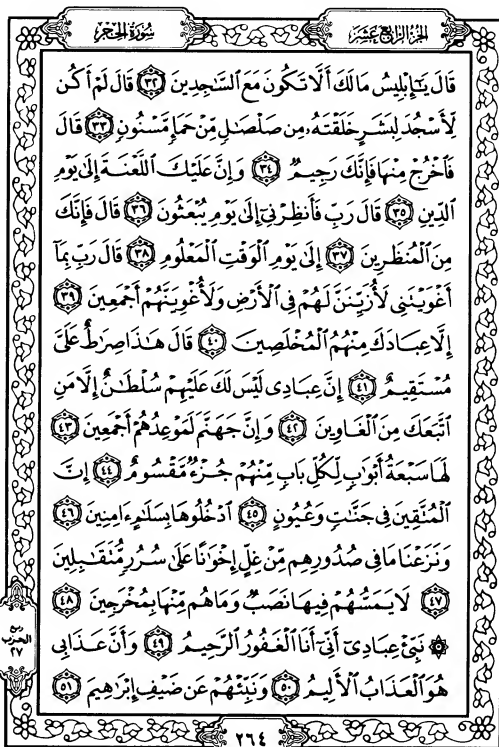 سُورَةُ الحِجْرِ
الجُزْءُ الرَّابِعُ عَشَرَ
قَالَ يَـٰٓإِبْلِيسُ مَالَكَ أَلَّا تَكُونَ مَعَ ٱلسَّـٰجِدِينَ ٣٢ قَالَ لَمْ أَكُن
لِّأَسْجُدَ لِبَشَرٍ خَلَقْتَهُۥ مِن صَلْصَـٰلٍ مِّنْ حَمَإٍ مَّسْنُونٍ ٣٣ قَالَ
فَٱخْرُجْ مِنْهَا فَإِنَّكَ رَجِيمٌ ٣٤ وَإِنَّ عَلَيْكَ ٱللَّعْنَةَ إِلَىٰ يَوْمِ
ٱلدِّينِ ٣٥ قَالَ رَبِّ فَأَنظِرْنِىٓ إِلَىٰ يَوْمِ يُبْعَثُونَ ٣٦ قَالَ فَإِنَّكَ
مِنَ ٱلْمُنظَرِينَ ٣٧ إِلَىٰ يَوْمِ ٱلْوَقْتِ ٱلْمَعْلُومِ ٣٨ قَالَ رَبِّ بِمَآ
أَغْوَيْتَنِى لَأُزَيِّنَنَّ لَهُمْ فِى ٱلْأَرْضِ وَلَأُغْوِيَنَّهُمْ أَجْمَعِينَ ٣٩
إِلَّا عِبَادَكَ مِنْهُمُ ٱلْمُخْلَصِينَ ٤٠ قَالَ هَـٰذَا صِرَٰطٌ عَلَىَّ
مُسْتَقِيمٌ ٤١ إِنَّ عِبَادِى لَيْسَ لَكَ عَلَيْهِمْ سُلْطَـٰنٌ إِلَّا مَنِ
ٱتَّبَعَكَ مِنَ ٱلْغَاوِينَ ٤٢ وَإِنَّ جَهَنَّمَ لَمَوْعِدُهُمْ أَجْمَعِينَ ٤٣
لَهَا سَبْعَةُ أَبْوَٰبٍ لِّكُلِّ بَابٍ مِّنْهُمْ جُزْءٌ مَّقْسُومٌ ٤٤ إِنَّ
ٱلْمُتَّقِينَ فِى جَنَّـٰتٍ وَعُيُونٍ ٤٥ ٱدْخُلُوهَا بِسَلَـٰمٍ ءَامِنِينَ ٤٦
وَنَزَعْنَا مَا فِى صُدُورِهِم مِّنْ غِلٍّ إِخْوَٰنًا عَلَىٰ سُرُرٍ مُّتَقَـٰبِلِينَ
٤٧ لَا يَمَسُّهُمْ فِيهَا نَصَبٌ وَمَا هُم مِّنْهَا بِمُخْرَجِينَ ٤٨
۞ نَبِّئْ عِبَادِىٓ أَنِّىٓ أَنَا ٱلْغَفُورُ ٱلرَّحِيمُ ٤٩ وَأَنَّ عَذَابِى
هُوَ ٱلْعَذَابُ ٱلْأَلِيمُ ٥٠ وَنَبِّئْهُمْ عَن ضَيْفِ إِبْرَٰهِيمَ ٥١
ربع
الحزب
٢٧
٢٦٤